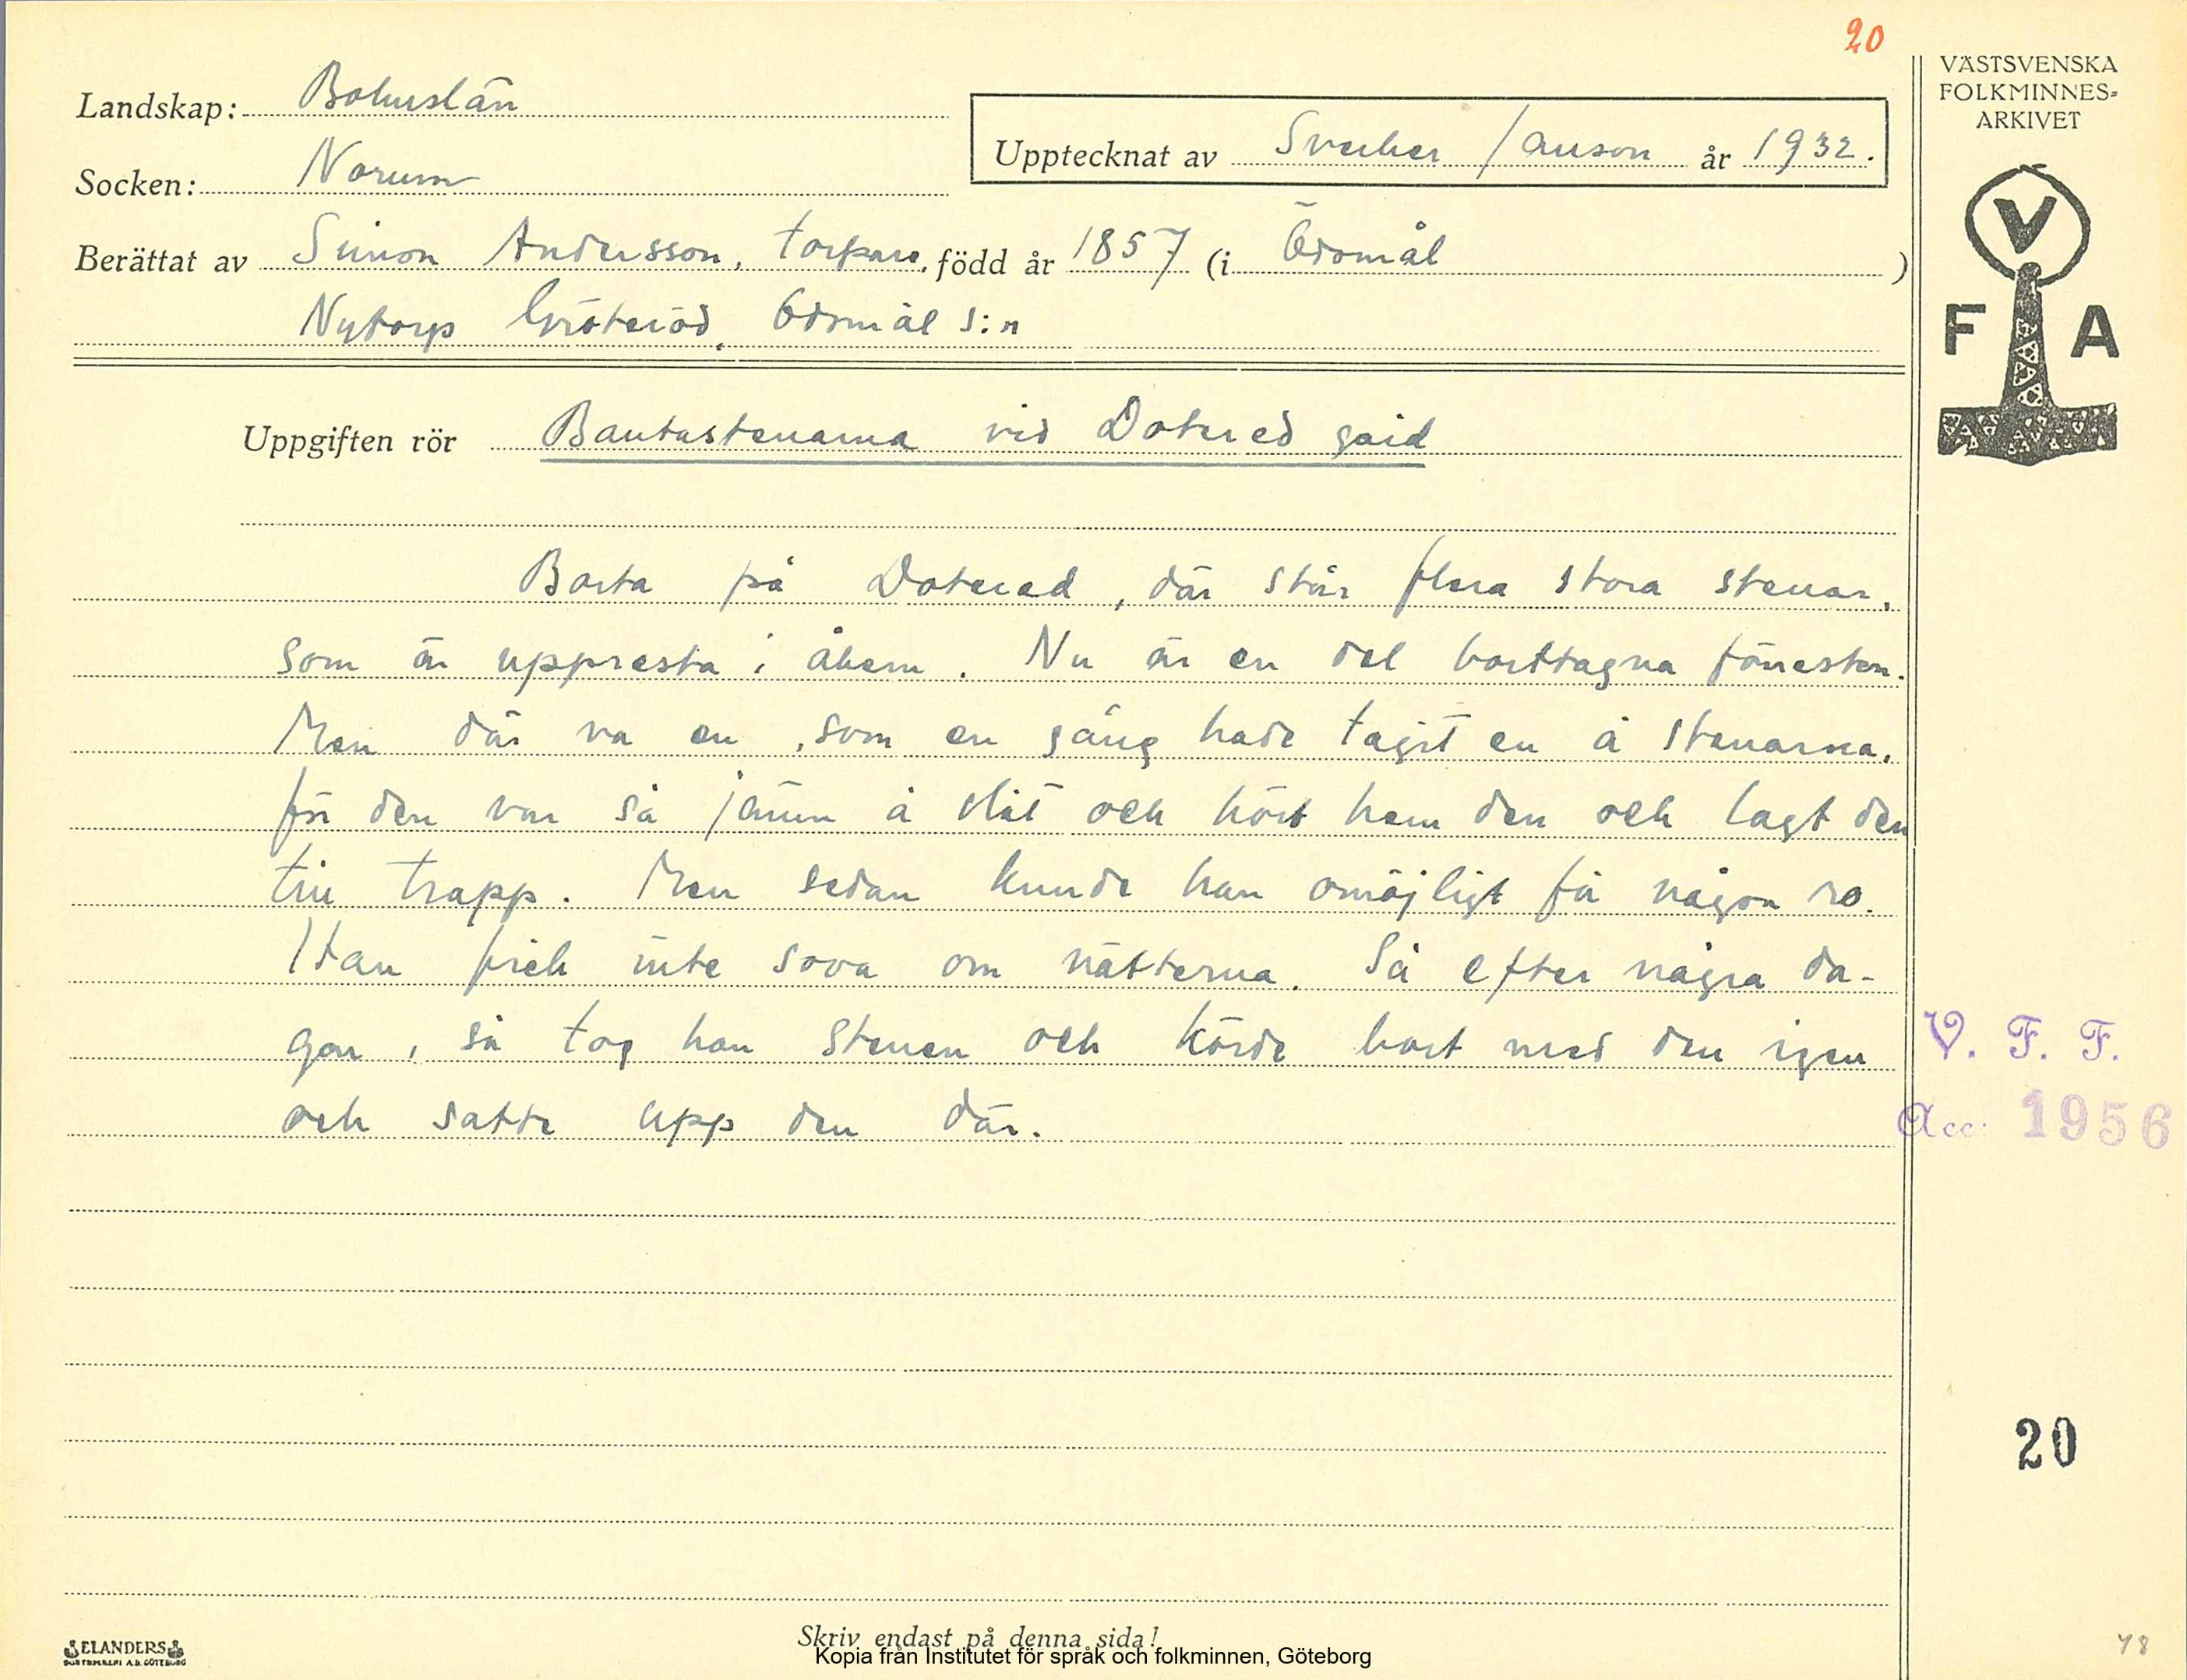 20
VÄSTSVENSKA
FOLKMINNES-
ARKIVET
Landskap: Bohuslän
Upptecknat av Sverker Janson år 1932.
Socken: Norum
Berättat av Simon Andersson, torpare, född år 1857 (i Ödsmål )
Nytorp Gröteröd, Ödsmål s:n
V
F A
Uppgiften rör Bautastenarna vid Dotered gård
Borta på Dotered, där står flera stora stenar,
som är uppresta i åkern. Nu är en del borttagna förresten.
Men där va en, som en gång hade tagit en å stenarna,
för den var så jämn å slät och kört hem den och lagt den
till trapp. Men sedan kunde han omöjligt få någon ro.
Han fick inte sova om nätterna. Så efter några da-
gar, så tog han stenen och körde bort med den igen
och satte upp den där.
V. F. F.
Acc: 1956
20
Skriv endast på denna sida!
Kopia från Institutet för språk och folkminnen, Göteborg
ELANDERS
A.B. GÖTEBORG
48